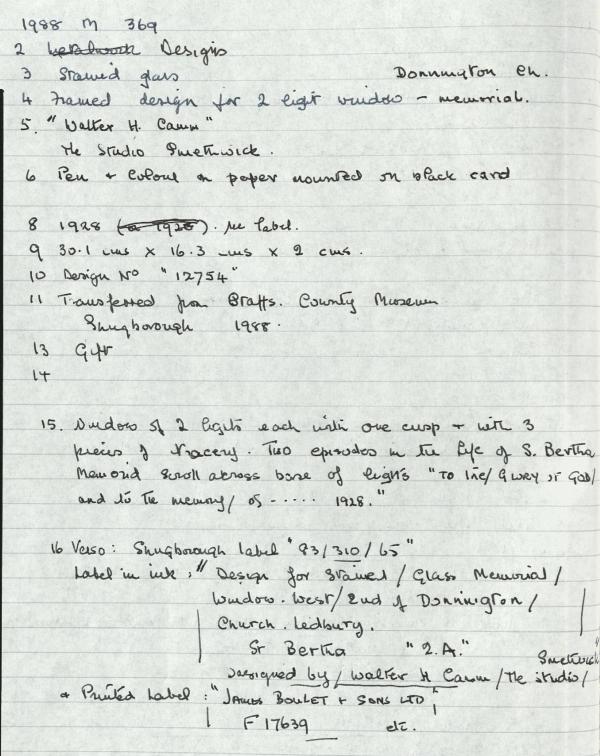 1988 M 369
2 Designs
3 Stained glass Donnington Ch.
4 Framed design for 2 light window - memorial.
5. "Walter H. Camm"
The Studio Smethwick.
6 Pen & Colour on paper mounted on black card
8 1928 (or 1926). see label.
9 30.1 cms x 16.3 cms x 2 cms.
10 Design No "12754"
11 Transferred from Staffs. County Museum
Shugborough 1988.
13 Gift
14
15. Window of 2 lights each with one cusp + with 3
pieces of tracery. Two episodes in the life of S. Bertha
Memorial scroll across base of lights "To the/ Glory of God/
and to the memory/ of ----- 1928."
16 Verso: Shugborough label "83/310/65"
Label in ink, "Design for Stained/Glass Memorial/
Window. West/2nd of Donnington/
Church. Ledbury.
St Bertha "2.A." Smethwick
Designed by/Walter H Camm/The Studio/
& Printed Label: "JAMES BOULET + SONS LTD
F 17639 etc.